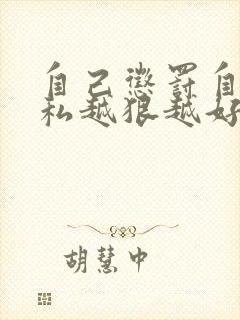 自己懲罰自
私越狠越好
胡慧中